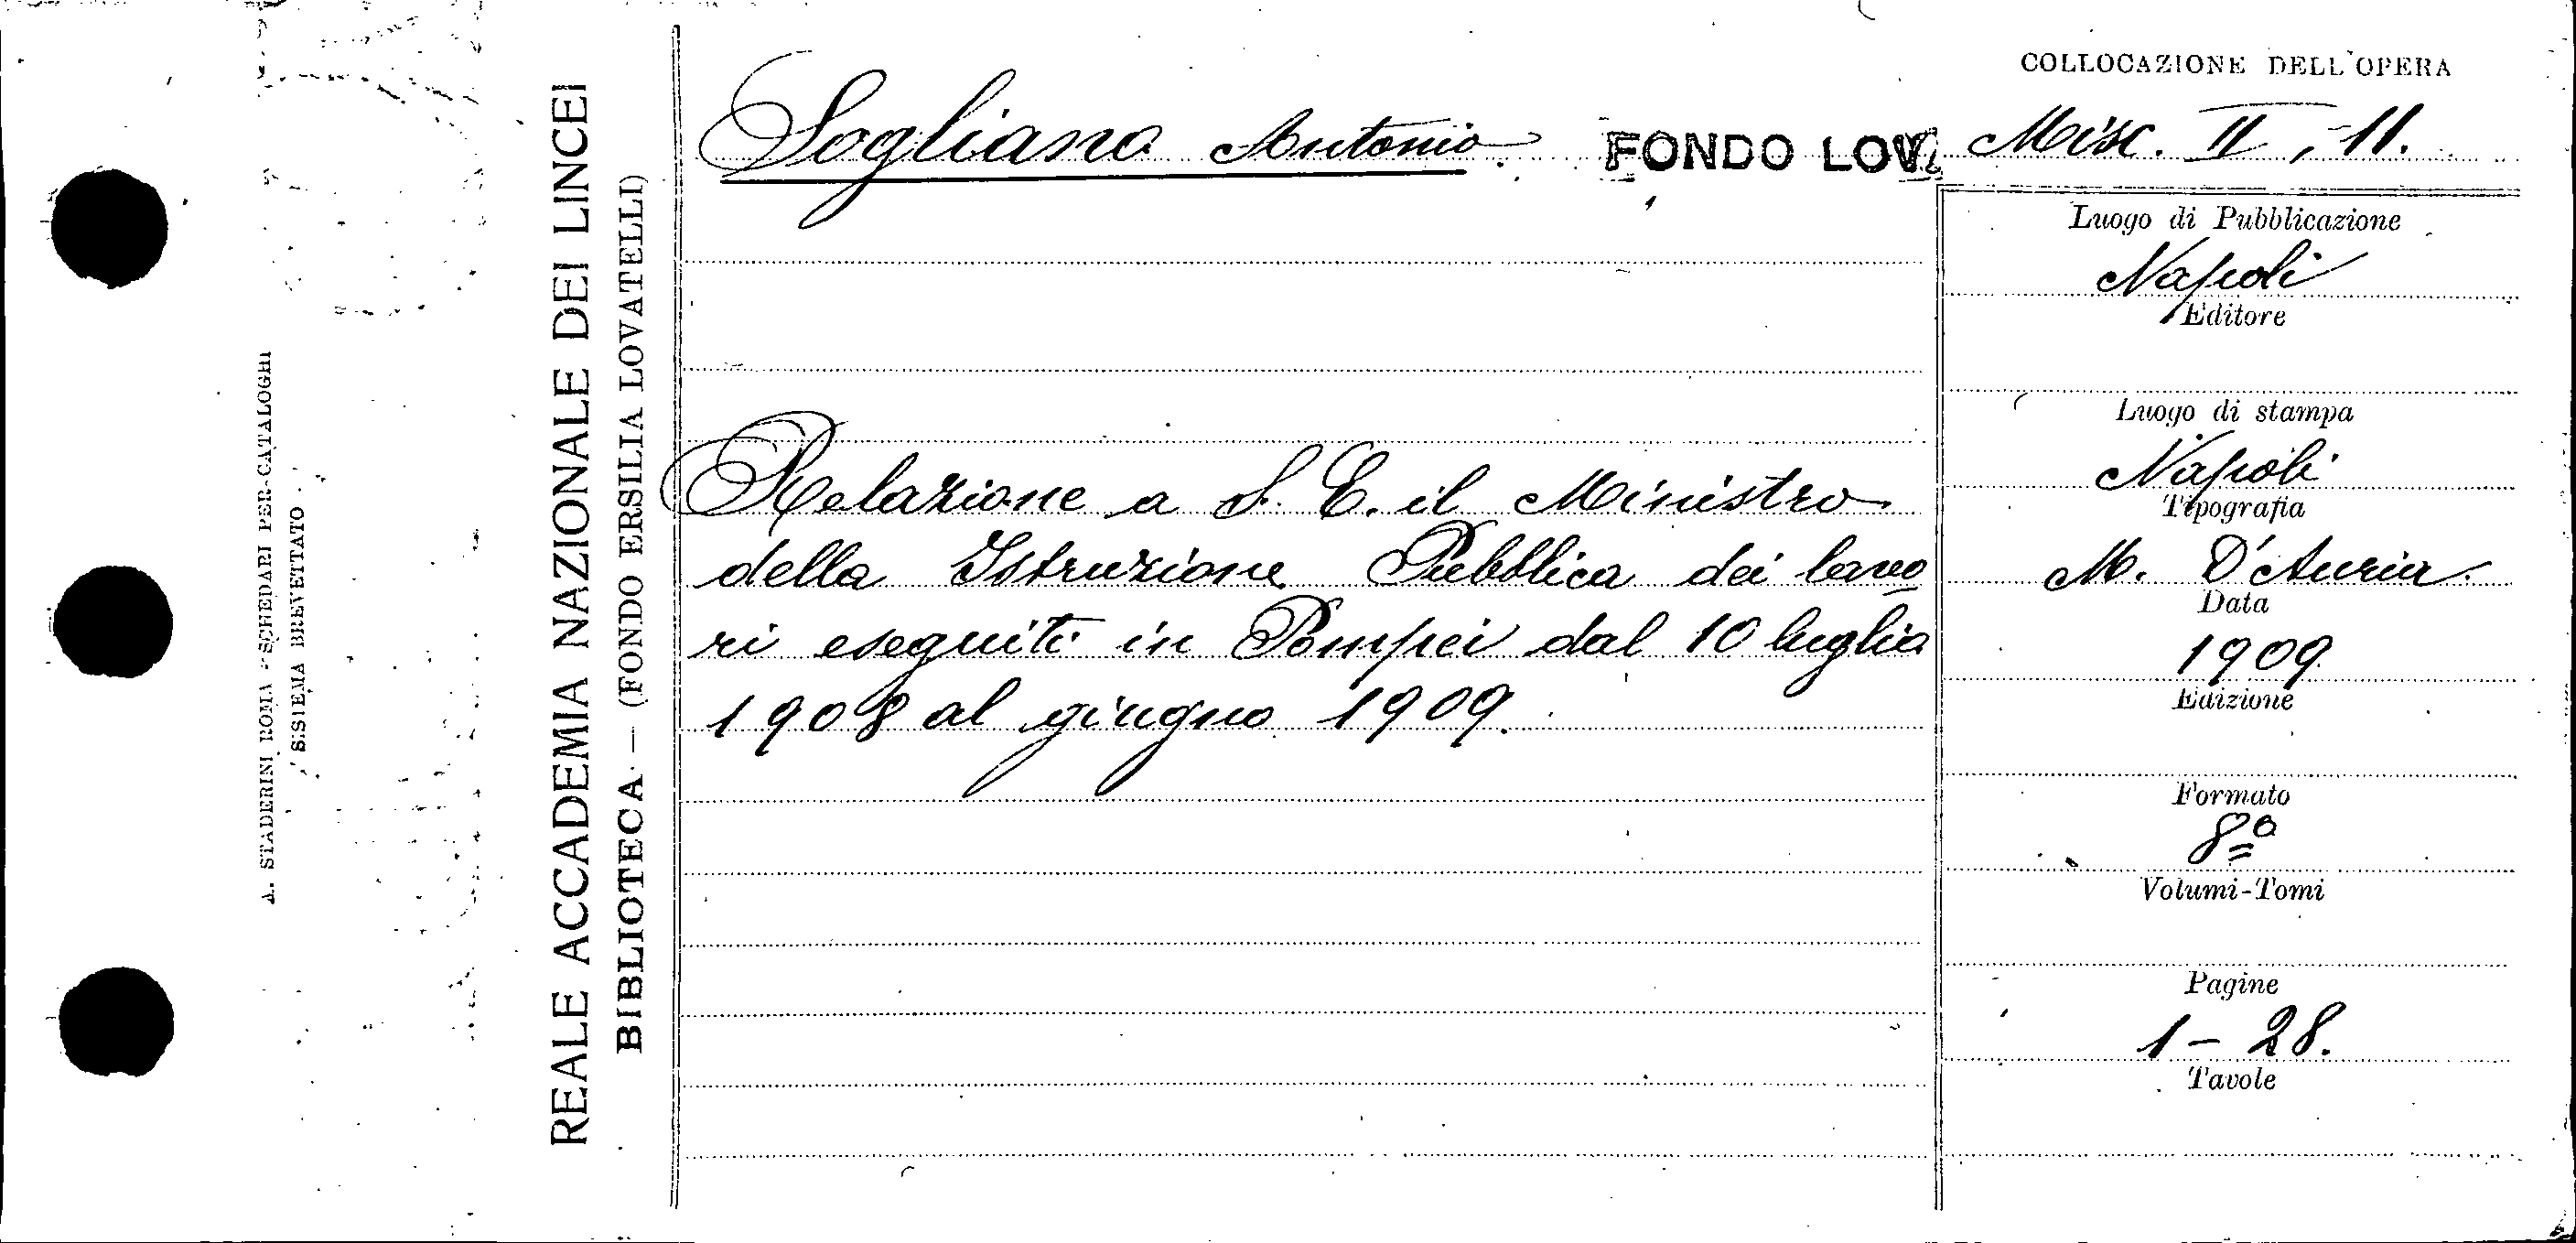 A. STADERINI ROMA - SCHEDARI PER CATALOGHI
SISTEMA BREVETTATO
REALE ACCADEMIA NAZIONALE DEI LINCEI
BIBLIOTECA — (FONDO ERSILIA LOVATELLI)
Sogliano Antonio.
FONDO LOV.
COLLOCAZIONE DELL'OPERA
Misc. II, 11.
Relazione a S. E. il Ministro
della Istruzione Pubblica dei lavo
ri eseguiti in Pompei dal 10 luglio
1908 al giugno 1909.
Luogo di Pubblicazione
Napoli
Editore
Luogo di stampa
Napoli
Tipografia
M. D'Auria.
Data
1909
Edizione
Formato
8º
Volumi-Tomi
Pagine
1 - 28.
Tavole